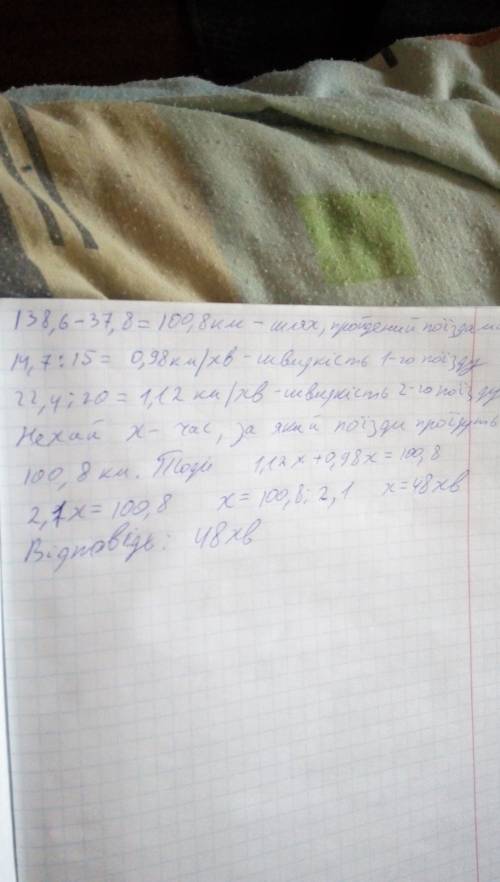 138,6-37,8=100,8км - шлях, пройдений поїздами
14,7:15= 0,98км/хв - швидкість 1-го поїзду
22,4:20=1,12 км/хв - швидкість 2-го поїзду
Нехай x - час, за який поїзди проїдуть
100,8 км. Тоді 1,12x+0,98x=100,8
2,1x=100,8 x=100,8:2,1 x=48хв
Відповідь: 48хв